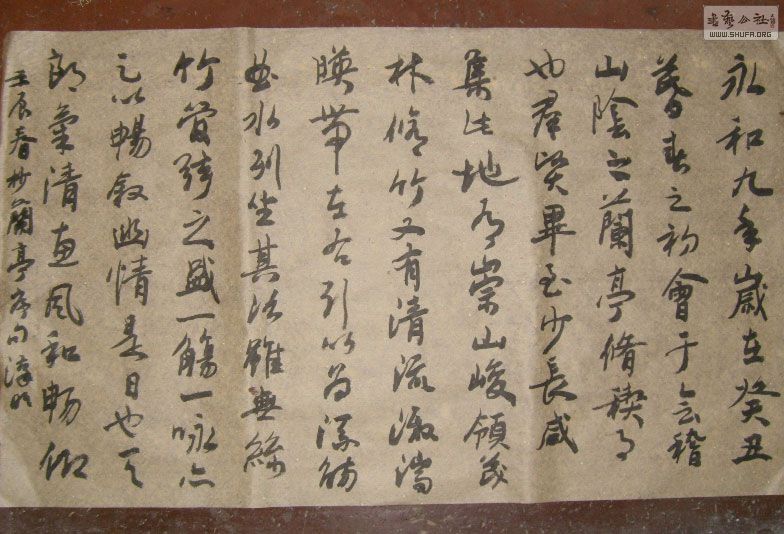 永和九年歲在癸丑
暮春之初會于会稽
山陰之蘭亭脩禊事
也群賢畢至少長咸
集此地有崇山峻領茂
林脩竹又有清流激湍
暎帶左右引以為流觴
曲水列坐其次雖無絲
竹管弦之盛一觴一詠亦
足以暢敘幽情是日也天
朗氣清惠風和暢仰
壬辰春抄蘭亭序句
书艺公社
WWW.SHUFA.ORG